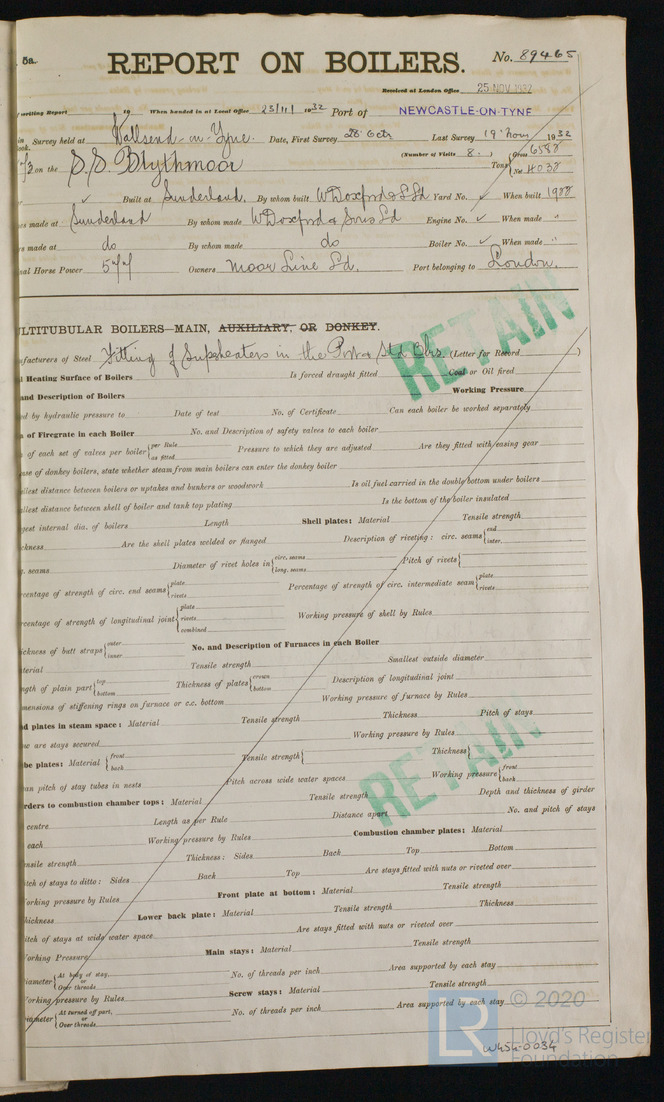 5a.
REPORT ON BOILERS.
No. 89465
Received at London Office 25 NOV 1932
writing Report 19 When handed in at Local Office 23/11/ 1932 Port of NEWCASTLE-ON-TYNE
Survey held at Wallsend-on-Tyne. Date, First Survey 28 Octr Last Survey 19 Novr 1932
on the S.S. Blythmoor (Number of Visits 8.) Tons Gross 6582 Net 4038
Built at Sunderland. By whom built W Doxford & S Ld Yard No. ✓ When built
made at Sunderland By whom made W Doxford & Sons Ld Engine No. ✓ When made "
made at do By whom made do Boiler No. ✓ When made "
nal Horse Power Owners Moor Line Ld. Port belonging to London.
RETAIN
LTITUBULAR BOILERS—MAIN, AUXILIARY, OR DONKEY.
nufacturers of Steel Fitting of Superheaters in the Port & Stbd Blrs. (Letter for Record )
l Heating Surface of Boilers Is forced draught fitted Coal or Oil fired
and Description of Boilers Working Pressure
d by hydraulic pressure to Date of test No. of Certificate Can each boiler be worked separately
of Firegrate in each Boiler No. and Description of safety valves to each boiler
of each set of valves per boiler { per Rule as fitted Pressure to which they are adjusted Are they fitted with easing gear
ase of donkey boilers, state whether steam from main boilers can enter the donkey boiler
llest distance between boilers or uptakes and bunkers or woodwork Is oil fuel carried in the double bottom under boilers
llest distance between shell of boiler and tank top plating Is the bottom of the boiler insulated
gest internal dia. of boilers Length Shell plates: Material Tensile strength
ckness Are the shell plates welded or flanged Description of riveting: circ. seams { end inter.
g. seams Diameter of rivet holes in { circ. seams long. seams Pitch of rivets {
rcentage of strength of circ. end seams { plate rivets Percentage of strength of circ. intermediate seam { plate rivets
rcentage of strength of longitudinal joint { plate rivets combined Working pressure of shell by Rules
ickness of butt straps { outer inner No. and Description of Furnaces in each Boiler
terial Tensile strength Smallest outside diameter
ngth of plain part { top bottom Thickness of plates { crown bottom Description of longitudinal joint
mensions of stiffening rings on furnace or c.c. bottom Working pressure of furnace by Rules
d plates in steam space: Material Tensile strength Thickness Pitch of stays
w are stays secured Working pressure by Rules
RETAIN
be plates: Material { front back Tensile strength { Thickness {
an pitch of stay tubes in nests Pitch across wide water spaces Working pressure { front back
rders to combustion chamber tops: Material Tensile strength Depth and thickness of girder
centre Length as per Rule Distance apart No. and pitch of stays
each Working pressure by Rules Combustion chamber plates: Material
nsile strength Thickness: Sides Back Top Bottom
itch of stays to ditto: Sides Back Top Are stays fitted with nuts or riveted over
orking pressure by Rules Front plate at bottom: Material Tensile strength
hickness Lower back plate: Material Tensile strength Thickness
itch of stays at wide water space Are stays fitted with nuts or riveted over
orking Pressure Main stays: Material Tensile strength
iameter { At body of stay, or Over threads No. of threads per inch Area supported by each stay
orking pressure by Rules Screw stays: Material Tensile strength
iameter { At turned off part, or Over threads No. of threads per inch Area supported by each stay
LR © 2020
Lloyd's Register
Foundation
W454-0034